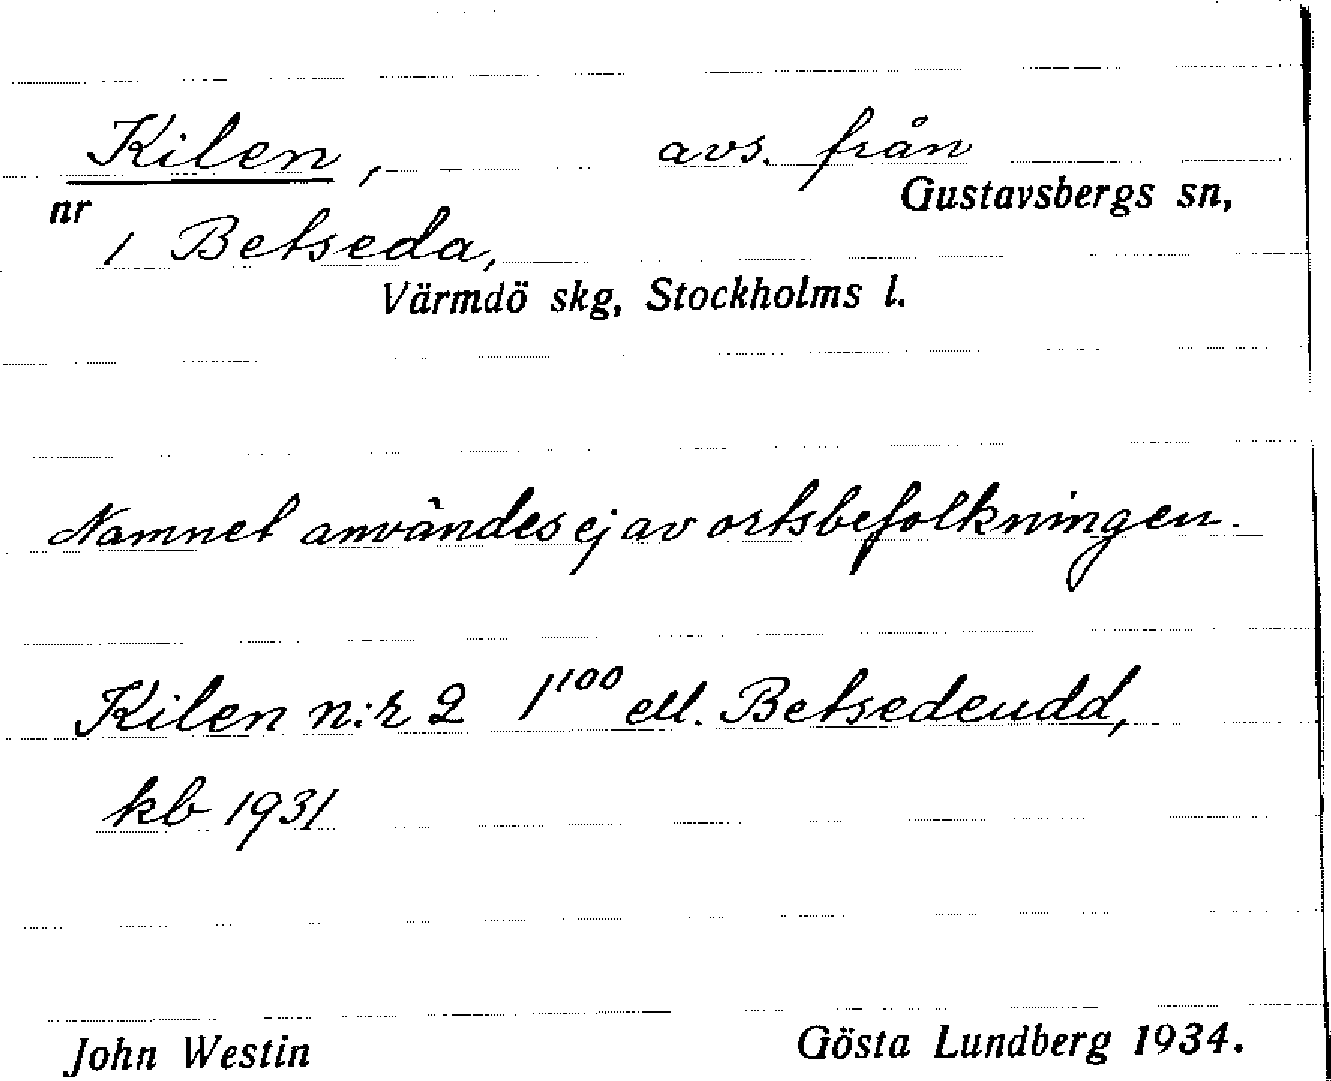 Kilen, avs. från
Gustavsbergs sn,
nr 1 Betseda,
Värmdö skg, Stockholms l.
Namnet användes ej av ortsbefolkningen.
Kilen n:r 2 1¹⁰⁰ ell. Betsedeudd,
kb 1931
John Westin Gösta Lundberg 1934.